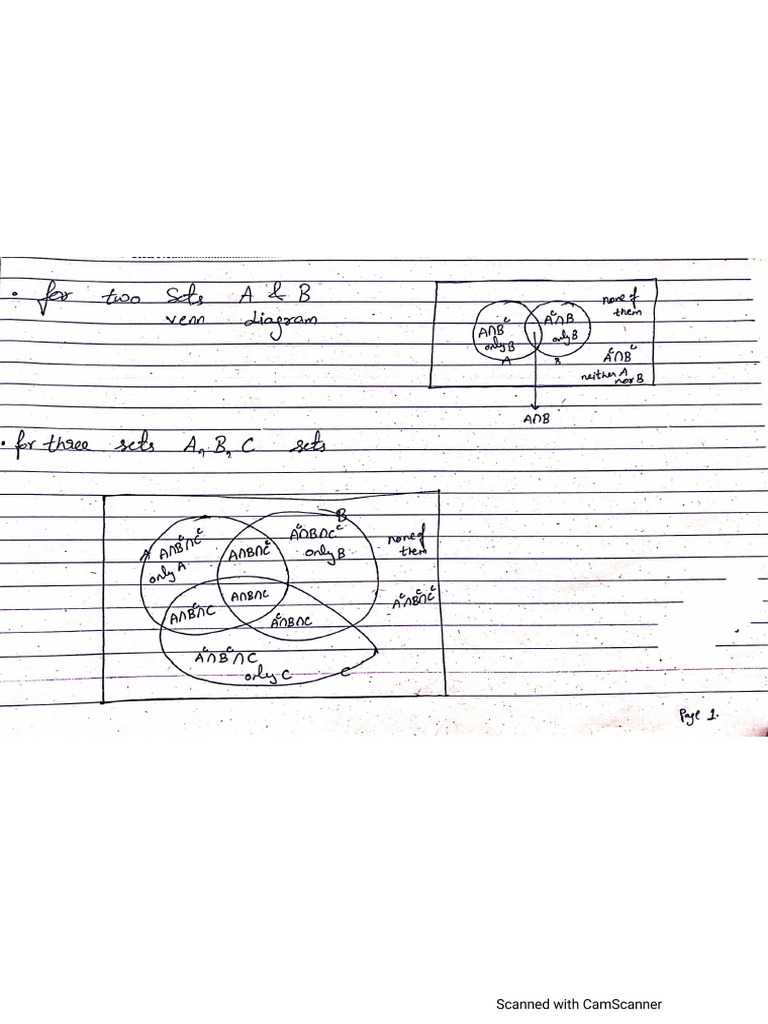 • for two Sets A & B
venn diagram
none of
them
A∩Bᶜ
only B
A
Aᶜ∩B
only B
B
Aᶜ∩Bᶜ
neither A
nor B
A∩B
• for three sets A, B, C sets
A
A∩Bᶜ∩Cᶜ
only A
A∩B∩Cᶜ
B
Aᶜ∩B∩Cᶜ
only B
none of
them
A∩B∩C
A∩Bᶜ∩C
Aᶜ∩B∩C
Aᶜ∩Bᶜ∩Cᶜ
Aᶜ∩Bᶜ∩C
only C
C
Page 1.
Scanned with CamScanner